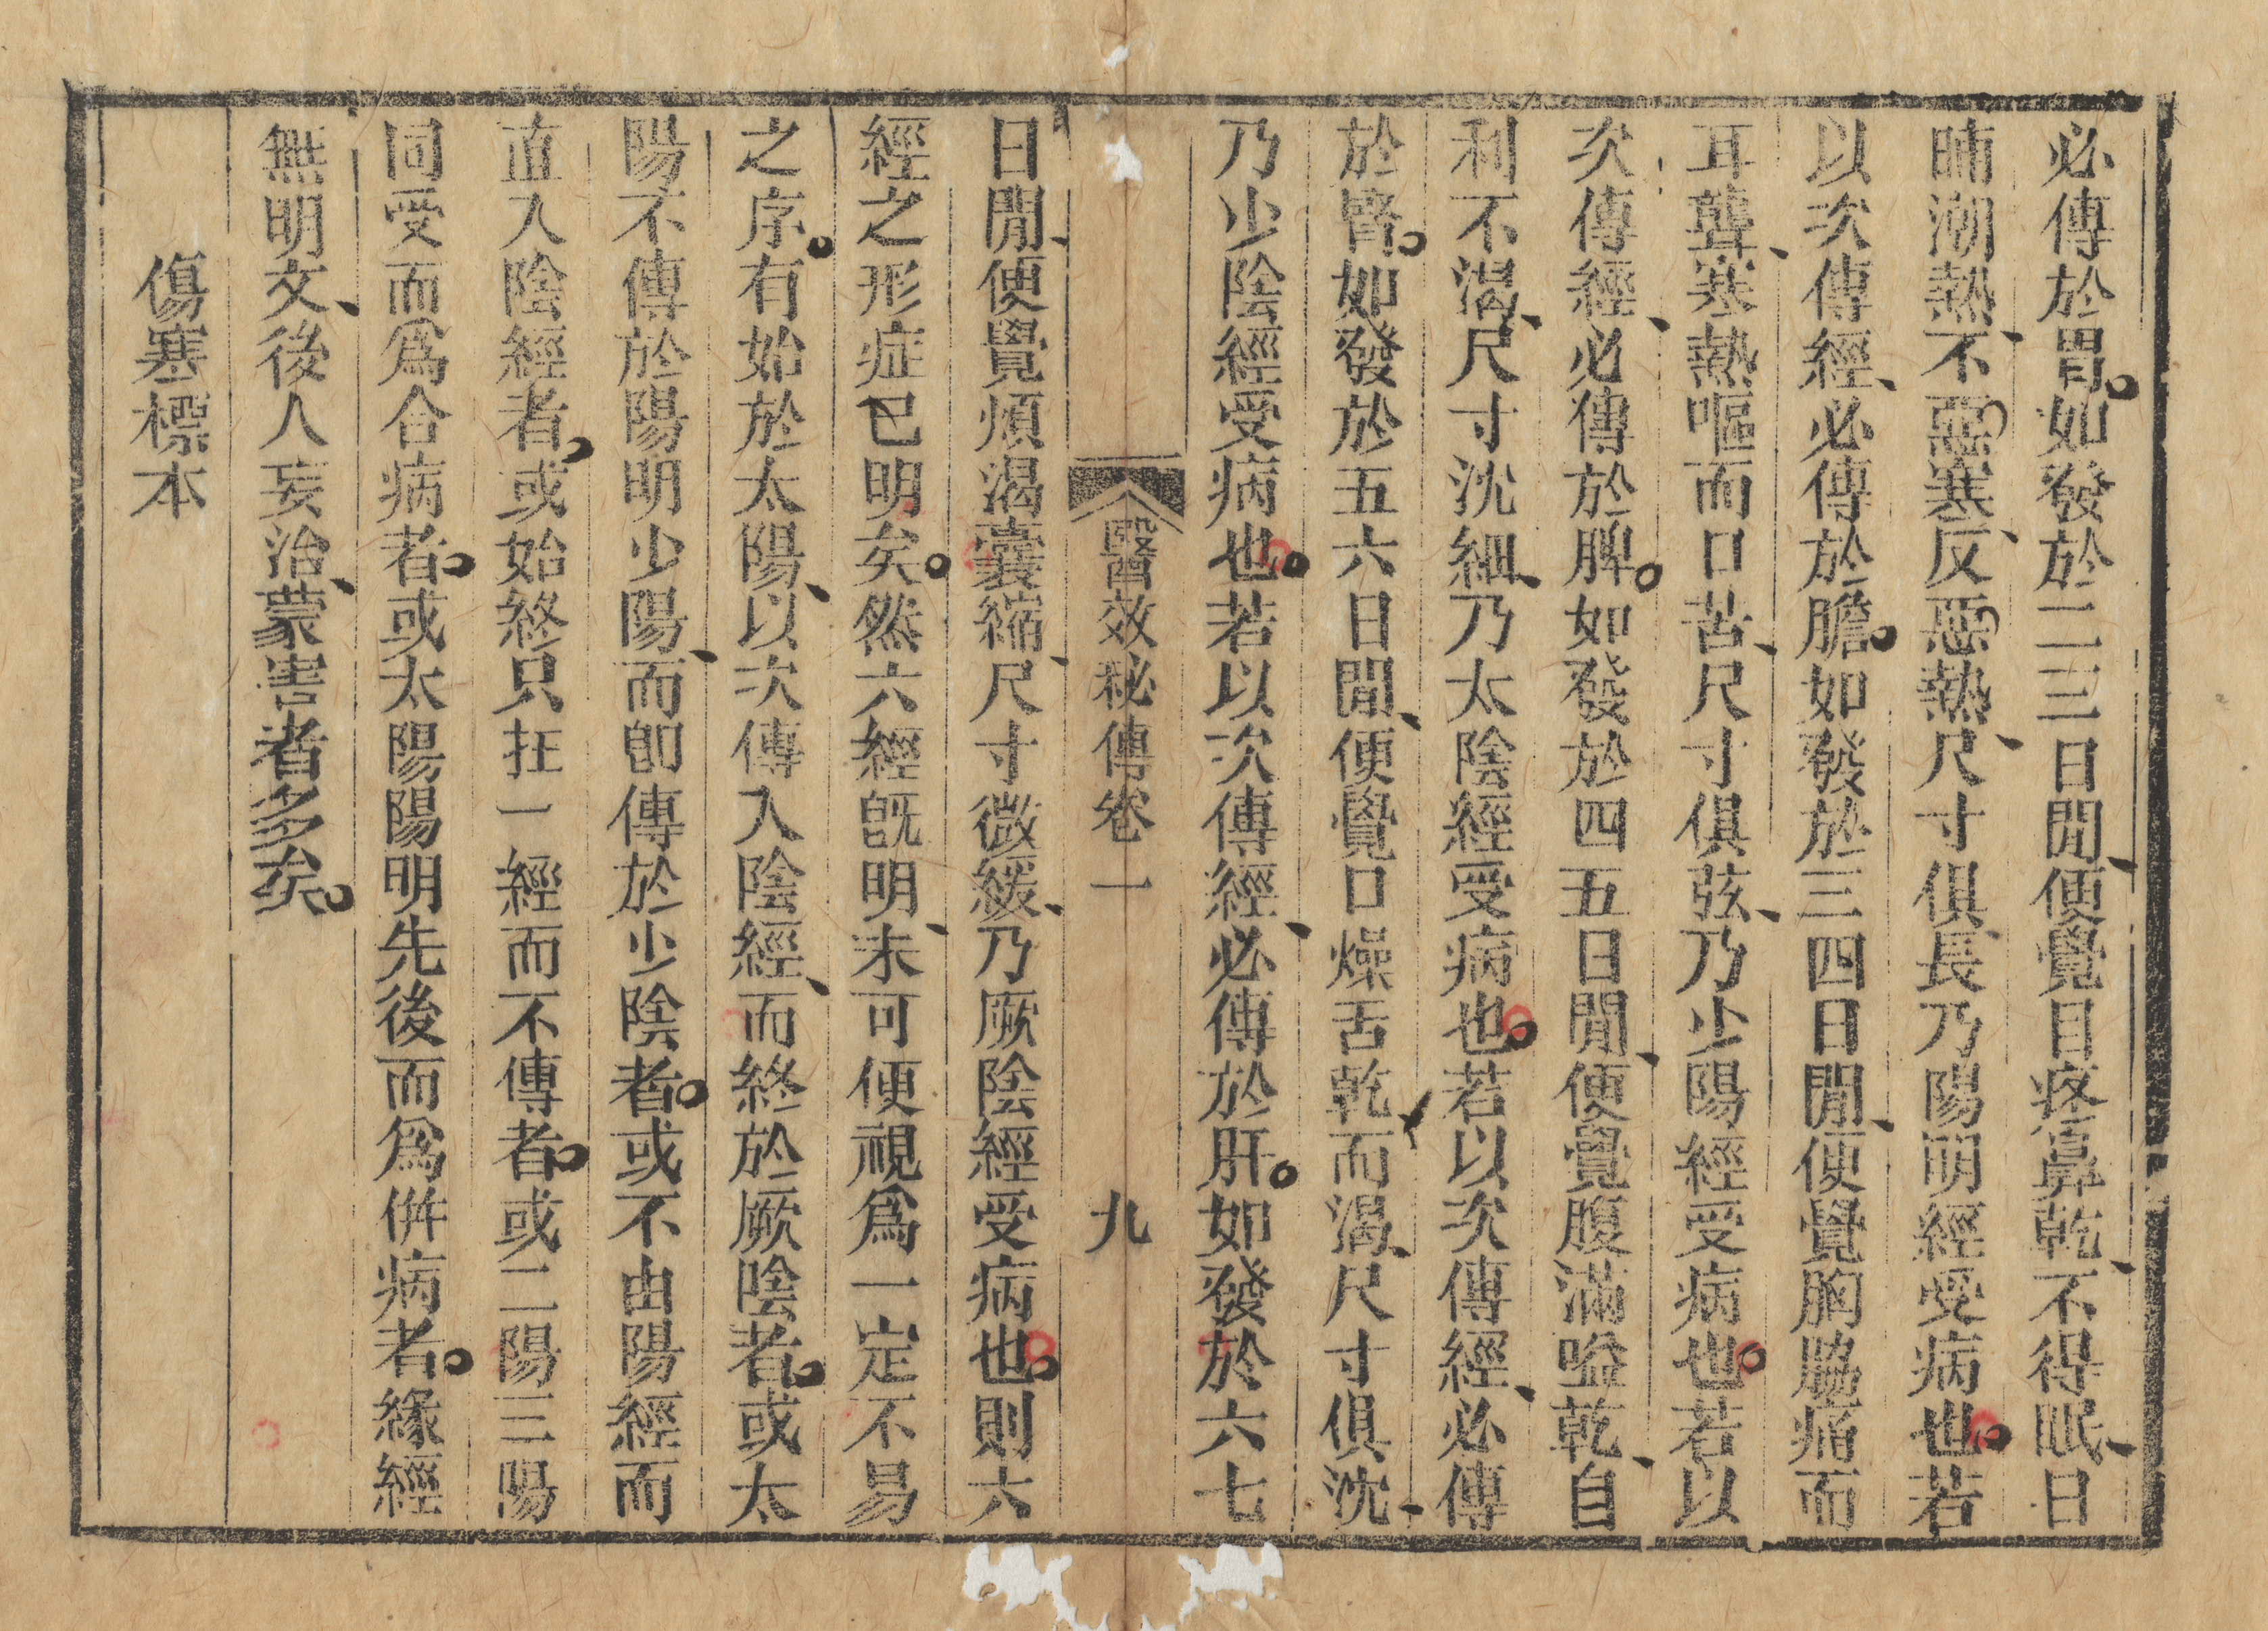 必傳於胃如發於二三日閒便覺目疼鼻乾不得眠日
晡潮熱不惡寒反惡熱尺寸俱長乃陽明經受病也若
以次傳經必傳於膽如發於三四日閒便覺胸脇痛而
耳聾寒熱嘔而口苦尺寸俱弦乃少陽經受病也若以
次傳經必傳於脾如發於四五日閒便覺腹滿嗌乾自
利不渴尺寸沈細乃太陰經受病也若以次傳經必傳
於腎如發於五六日閒便覺口燥舌乾而渴尺寸俱沈
乃少陰經受病也若以次傳經必傳於肝如發於六七
醫效秘傳卷一 九
日閒便覺煩渴囊縮尺寸微緩乃厥陰經受病也則六
經之形症已明矣然六經旣明未可便視爲一定不易
之序有始於太陽以次傳入陰經而終於厥陰者或太
陽不傳於陽明少陽而卽傳於少陰者或不由陽經而
直入陰經者或始終只在一經而不傳者或二陽三陽
同受而爲合病者或太陽陽明先後而爲倂病者緣經
無明文後人妄治蒙害者多矣
傷寒標本